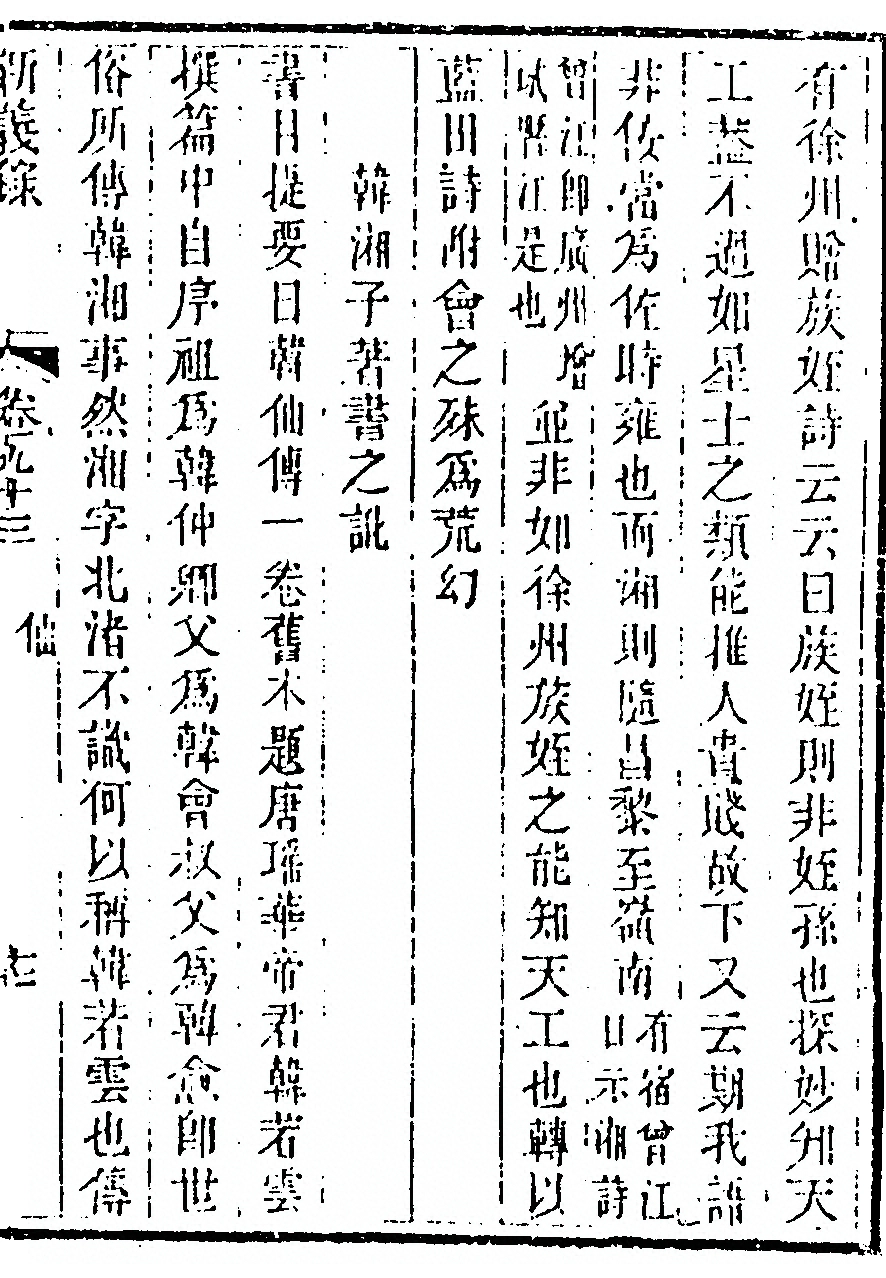 有徐州贈族姪詩云云曰族姪則非姪孫也探妙知天
工蓋不過如星士之類能推人貴賤故下又云期我語
非佞當爲佐時雍也而湘則隨昌黎至嶺南有宿曾江
口示湘詩
曾江卽廣州增
城增江是也並非如徐州族姪之能知天工也轉以
藍田詩附會之殊爲荒幻
韓湘子著書之訛
書目提要曰韓仙傳一卷舊本題唐瑤華帝君韓若雲
撰篇中自序祖爲韓仲卿父爲韓會叔父爲韓愈卽世
俗所傳韓湘事然湘字北渚不識何以稱韓若雲也傳
新義錄 卷九十三 仙